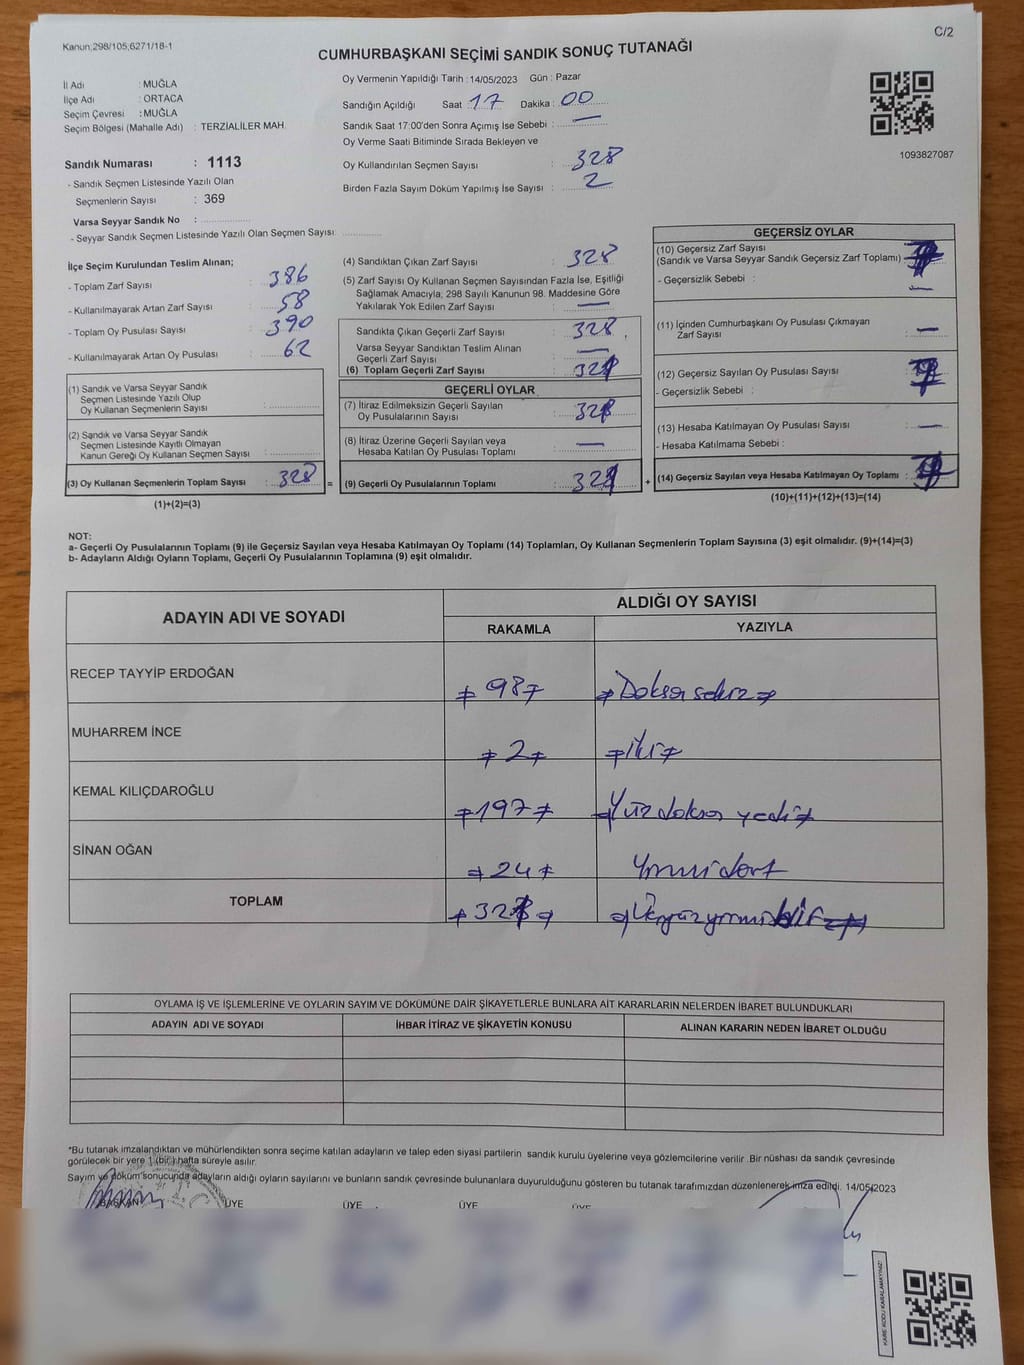 Kanun;298/105;6271/18-1
C/2
CUMHURBAŞKANI SEÇİMİ SANDIK SONUÇ TUTANAĞI
İl Adı : MUĞLA
İlçe Adı : ORTACA
Seçim Çevresi : MUĞLA
Seçim Bölgesi (Mahalle Adı) : TERZİALİLER MAH.
Sandık Numarası : 1113
- Sandık Seçmen Listesinde Yazılı Olan
Seçmenlerin Sayısı : 369
Varsa Seyyar Sandık No :
- Seyyar Sandık Seçmen Listesinde Yazılı Olan Seçmen Sayısı:
Oy Vermenin Yapıldığı Tarih :14/05/2023 Gün : Pazar
Sandığın Açıldığı Saat 17 Dakika : 00
Sandık Saat 17:00'den Sonra Açımış İse Sebebi : —
Oy Verme Saati Bitiminde Sırada Bekleyen ve
Oy Kullandırılan Seçmen Sayısı : 328
Birden Fazla Sayım Döküm Yapılmış İse Sayısı : 2
1093827087
İlçe Seçim Kurulundan Teslim Alınan;
- Toplam Zarf Sayısı : 386
- Kullanılmayarak Artan Zarf Sayısı : 58
- Toplam Oy Pusulası Sayısı : 390
- Kullanılmayarak Artan Oy Pusulası : 62
(1) Sandık ve Varsa Seyyar Sandık
Seçmen Listesinde Yazılı Olup
Oy Kullanan Seçmenlerin Sayısı :
(2) Sandık ve Varsa Seyyar Sandık
Seçmen Listesinde Kayıtlı Olmayan
Kanun Gereği Oy Kullanan Seçmen Sayısı :
(3) Oy Kullanan Seçmenlerin Toplam Sayısı : 328 =
(1)+(2)=(3)
(4) Sandıktan Çıkan Zarf Sayısı : 328
(5) Zarf Sayısı Oy Kullanan Seçmen Sayısından Fazla İse, Eşitliği
Sağlamak Amacıyla; 298 Sayılı Kanunun 98. Maddesine Göre
Yakılarak Yok Edilen Zarf Sayısı : —
Sandıkta Çıkan Geçerli Zarf Sayısı : 328
Varsa Seyyar Sandıktan Teslim Alınan
Geçerli Zarf Sayısı : —
(6) Toplam Geçerli Zarf Sayısı :
GEÇERLİ OYLAR
(7) İtiraz Edilmeksizin Geçerli Sayılan
Oy Pusulalarının Sayısı :
(8) İtiraz Üzerine Geçerli Sayılan veya
Hesaba Katılan Oy Pusulası Toplamı : —
(9) Geçerli Oy Pusulalarının Toplamı : +
GEÇERSİZ OYLAR
(10) Geçersiz Zarf Sayısı
(Sandık ve Varsa Seyyar Sandık Geçersiz Zarf Toplamı) :
- Geçersizlik Sebebi : —
(11) İçinden Cumhurbaşkanı Oy Pusulası Çıkmayan
Zarf Sayısı : —
(12) Geçersiz Sayılan Oy Pusulası Sayısı :
- Geçersizlik Sebebi :
(13) Hesaba Katılmayan Oy Pusulası Sayısı : —
- Hesaba Katılmama Sebebi :
(14) Geçersiz Sayılan veya Hesaba Katılmayan Oy Toplamı :
(10)+(11)+(12)+(13)=(14)
NOT:
a- Geçerli Oy Pusulalarının Toplamı (9) ile Geçersiz Sayılan veya Hesaba Katılmayan Oy Toplamı (14) Toplamları, Oy Kullanan Seçmenlerin Toplam Sayısına (3) eşit olmalıdır. (9)+(14)=(3)
b- Adayların Aldığı Oyların Toplamı, Geçerli Oy Pusulalarının Toplamına (9) eşit olmalıdır.
ADAYIN ADI VE SOYADI
ALDIĞI OY SAYISI
RAKAMLA YAZIYLA
RECEP TAYYİP ERDOĞAN 98 Doksan sekiz
MUHARREM İNCE 2 iki
KEMAL KILIÇDAROĞLU 197 Yüz doksan yedi
SİNAN OĞAN 24 Yirmi dört
TOPLAM Üçyüzyirmibir
OYLAMA İŞ VE İŞLEMLERİNE VE OYLARIN SAYIM VE DÖKÜMÜNE DAİR ŞİKAYETLERLE BUNLARA AİT KARARLARIN NELERDEN İBARET BULUNDUKLARI
ADAYIN ADI VE SOYADI İHBAR İTİRAZ VE ŞİKAYETİN KONUSU ALINAN KARARIN NEDEN İBARET OLDUĞU
*Bu tutanak imzalandıktan ve mühürlendikten sonra seçime katılan adayların ve talep eden siyasi partilerin sandık kurulu üyelerine veya gözlemcilerine verilir .Bir nüshası da sandık çevresinde
görülecek bir yere 1 (bir) hafta süreyle asılır.
Sayım ve döküm sonucunda adayların aldığı oyların sayılarını ve bunların sandık çevresinde bulunanlara duyurulduğunu gösteren bu tutanak tarafımızdan düzenlenerek imza edildi. 14/05/2023
BAŞKAN ÜYE ÜYE ÜYE ÜYE
KARE KODU KARALAMAYINIZ!